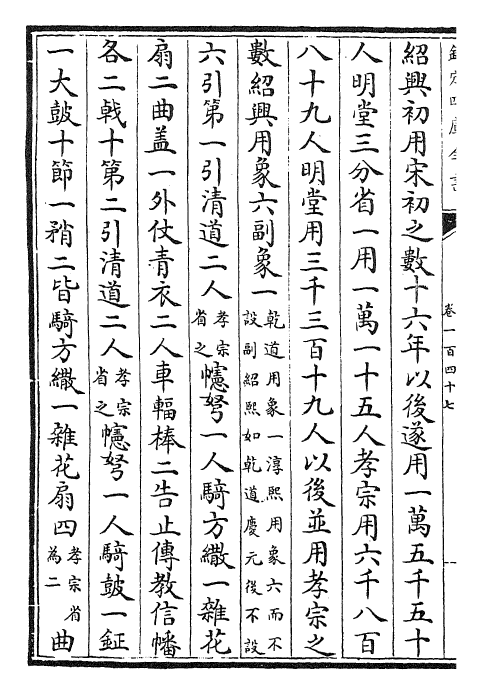 欽定四庫全書
卷一百四十七
紹興初用宋初之數十六年以後遂用一萬五千五十
人明堂三分省一用一萬一十五人孝宗用六千八百
八十九人明堂用三千三百十九人以後並用孝宗之
數紹興用象六副象一乾道用象一淳熙用象六而不設副紹熙如乾道慶元後不設
六引第一引清道二人孝宗省之幰弩一人騎方繖一雜花
扇二曲盖一外仗青衣二人車輻棒二告止傳教信幡
各二戟十第二引清道二人孝宗省之幰弩一人騎皷一鉦
一大皷十節一矟二皆騎方繖一雜花扇四孝宗省為二曲